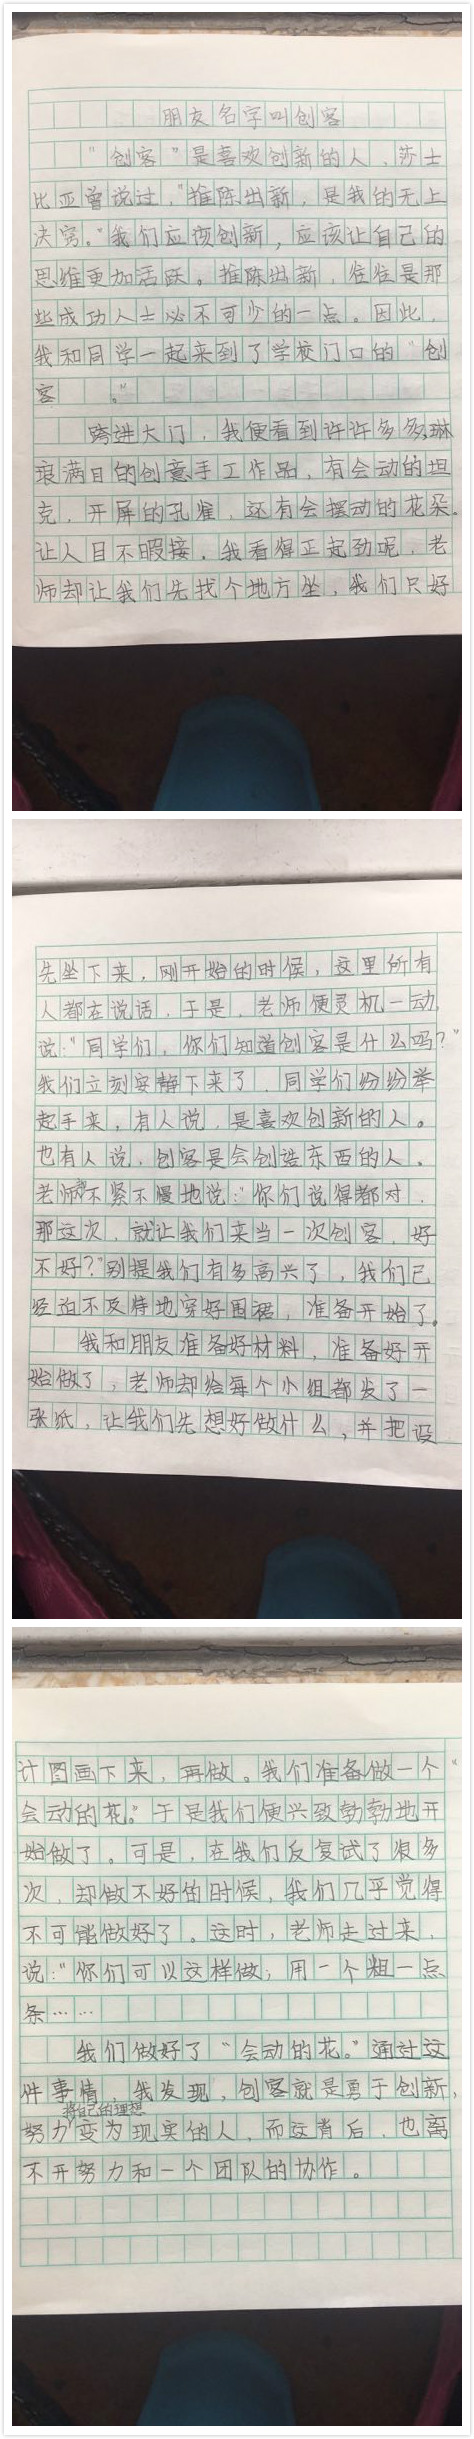 朋友名字叫创客
“创客”是喜欢创新的人，莎士
比亚曾说过，“推陈出新，是我的无上
决窍。”我们应该创新，应该让自己的
思维更加活跃。推陈出新，往往是那
些成功人士必不可少的一点。因此，
我和同学一起来到了学校门口的“创
客”。
跨进大门，我便看到许许多多琳
琅满目的创意手工作品，有会动的坦
克，开屏的孔雀，还有会摆动的花朵。
让人目不暇接。我看得正起劲呢，老
师却让我们先找个地方坐，我们只好
先坐下来，刚开始的时候，这里所有
人都在说话，于是，老师便灵机一动，
说：“同学们，你们知道创客是什么吗？”
我们立刻安静下来了，同学们纷纷举
起手来，有人说，是喜欢创新的人。
也有人说，创客是会创造东西的人、
老师不紧不慢地说：“你们说得都对，
那这次，就让我们来当一次创客，好
不好？”别提我们有多高兴了，我们已
经迫不及待地穿好围裙，准备开始了。
我和朋友准备好材料，准备好开
始做了，老师却给每个小组都发了一
张纸，让我们先想好做什么，并把设
计图画下来，再做。我们准备做一个“
会动的花。”于是我们便兴致勃勃地开
始做了。可是，在我们反复试了很多
次，却做不好的时候，我们几乎觉得
不可能做好了。这时，老师走过来，
说：“你们可以这样做；用一个粗一点
条……
我们做好了“会动的花。”通过这
件事情，我发现，创客就是勇于创新，
努力将自己的理想变为现实的人，而这背后，也离
不开努力和一个团队的协作。